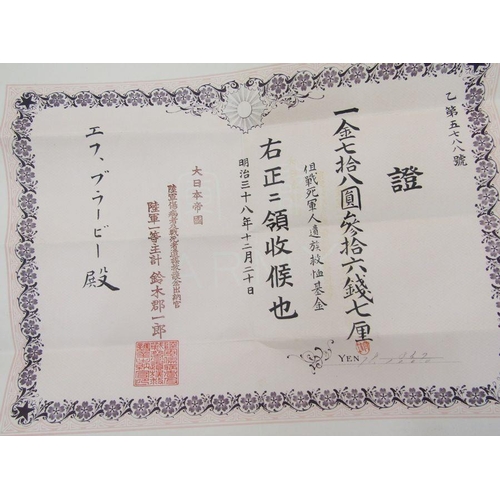 乙第五七八號
證
一金七拾八圓參拾六錢七厘
但戰死軍人遺族救恤基金
YEN
右正ニ領收候也
明治三十八年十二月二十日
大日本帝國
陸軍一等主計 鈴木郡一郎
エフ、ブラービー 殿